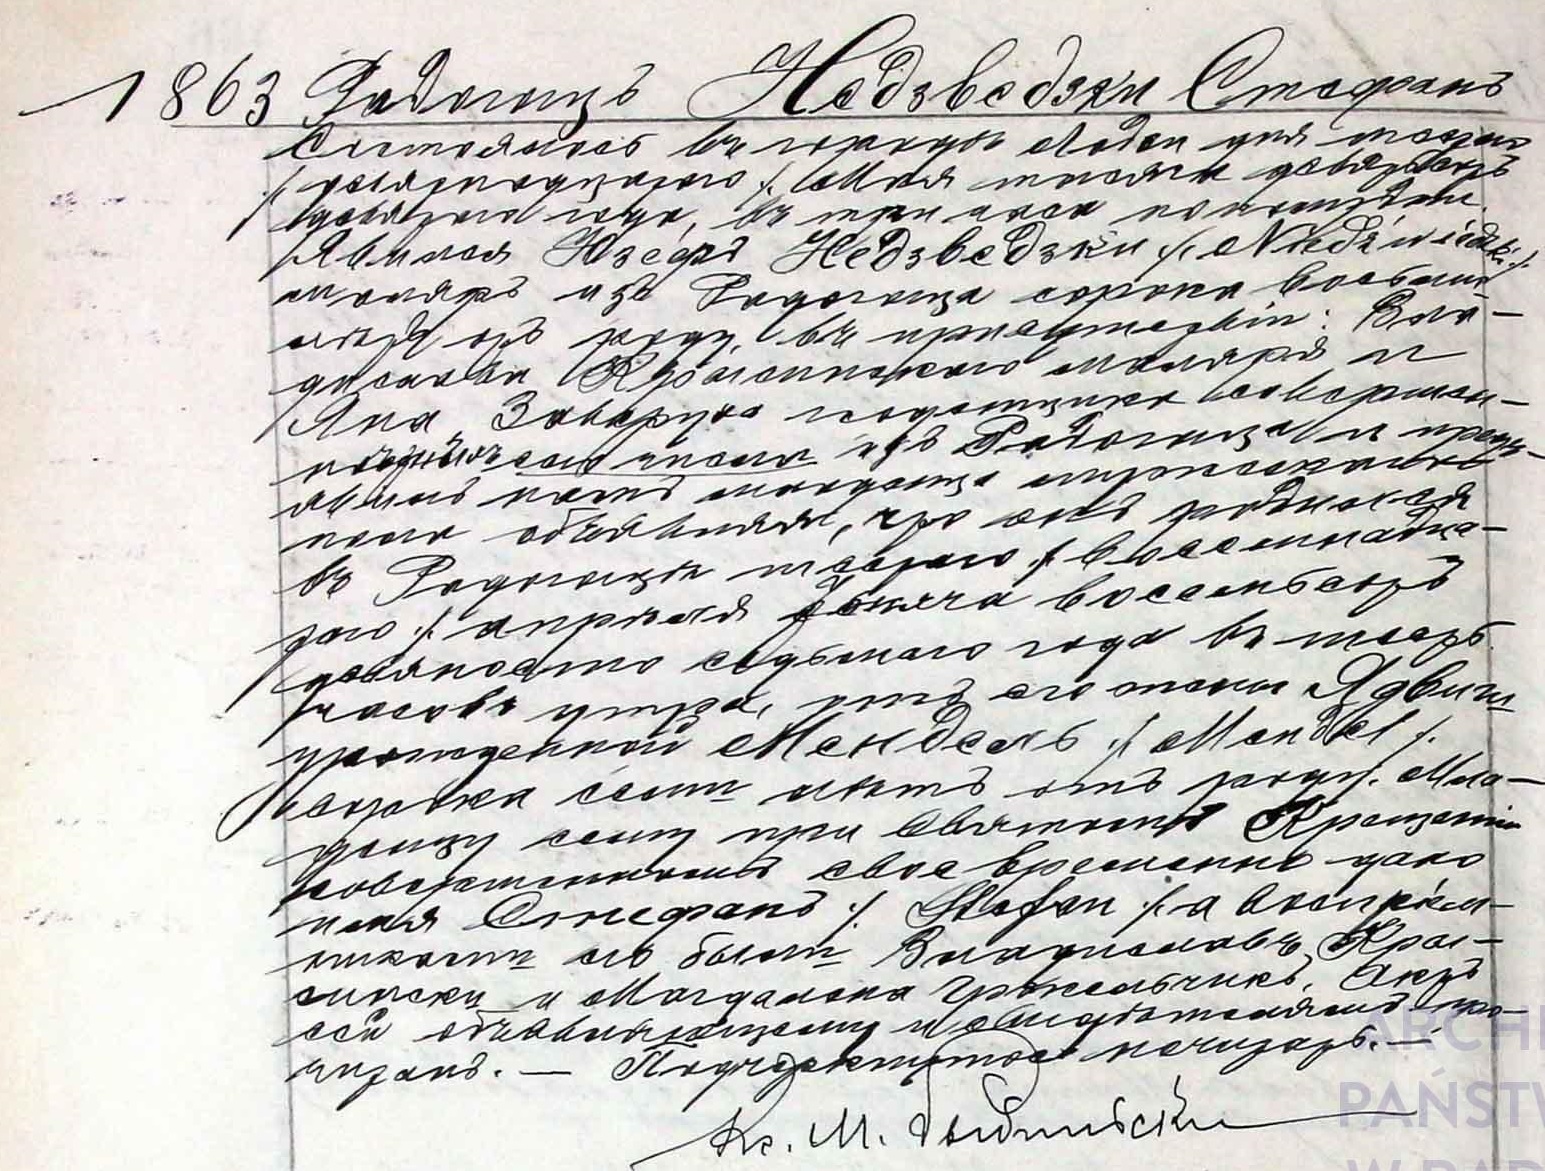 1863 Радогощъ Недзведзки Стефанъ
Состоялось въ городѣ Лодзи дня шестаго
/: девятнадцатаго :/ Мая тысяча девятьсотъ
девятаго года, въ три часа пополудни.
Явился Юзефъ Недзведзки /: Niedźwiedzki :/
маляръ изъ Радогоща сорока восьми
лѣтъ отъ роду, въ присутствіи: Вла-
дислава Красинскаго маляра и
Яна Заверуха совершен-
нолѣтнихъ изъ Радогоща и предъ-
явилъ намъ младенца мужескаго
пола объявляя, что онъ родился
въ Радогощѣ шестаго /: восемнадца-
таго :/ апрѣля тысяча восемьсотъ
девяносто седьмаго года въ шесть
часовъ утра, отъ его жены Ядвиги
урожденной Мендель /: Mendel :/
сорока семи лѣтъ отъ роду. Мла-
денцу сему при Святомъ Крещеніи
совершенномъ своевременно дано
имя Стефанъ /: Stefan :/ а воспріем-
никами его были Владиславъ Кра-
сински и Магдалена Гржельчикъ. Актъ
сей объявляющему и свидѣтелямъ про-
читанъ. —
Кс. М.
ARCHI
PAŃSTW
W RAD